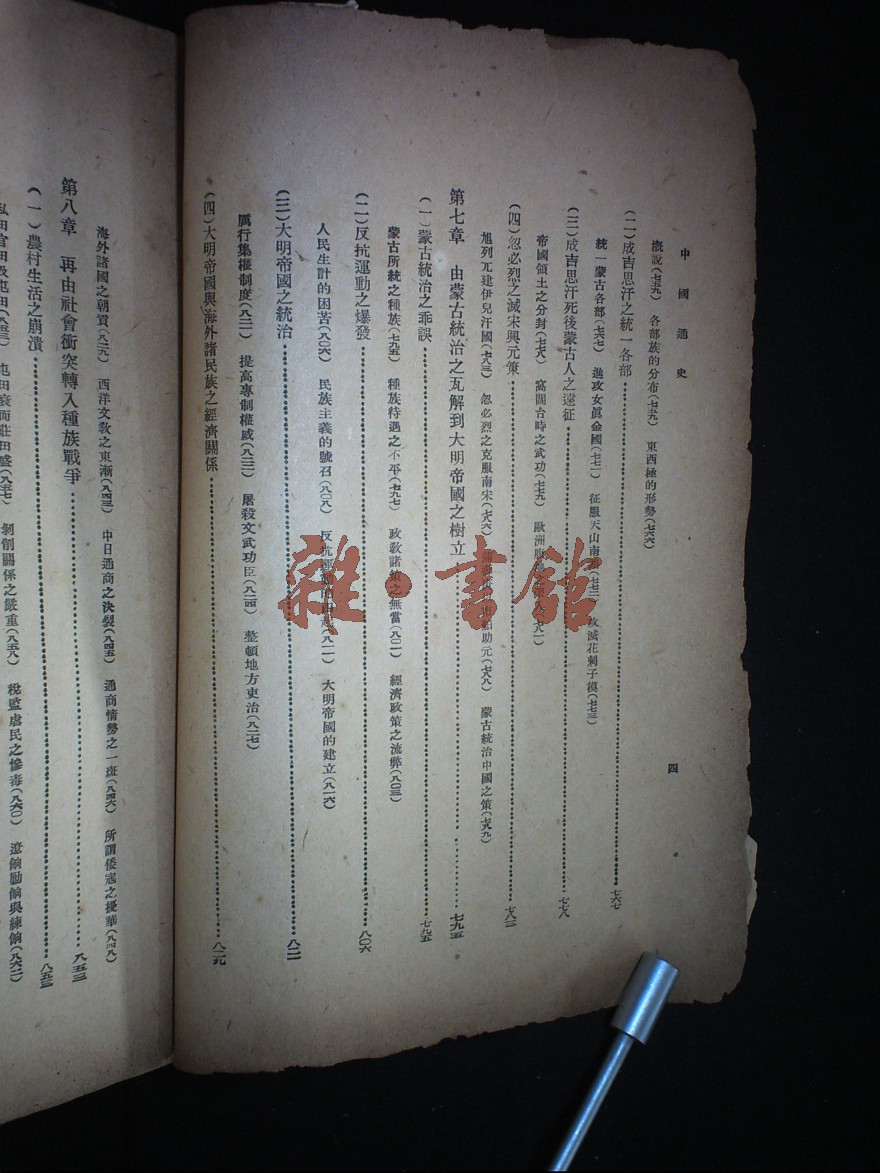 中國通史
四
概說(七五九) 各部族的分布(七五九) 東西極的形勢(七六六)
(二)成吉思汗之統一各部……七六七
統一蒙古各部(七六七) 進攻女眞金國(七七一) 征服天山南路(七七二) 攻滅花剌子模(七七三)
(三)成吉思汗死後蒙古人之遠征……七七八
帝國領土之分封(七七八) 窩闊台時之武功(七七九) 歐洲
(四)忽必烈之滅宋興元策……七八三
旭列兀建伊兒汗國(七八三) 忽必烈之克服南宋(七八六) 助元(七八八) 蒙古統治中國之策(七八九)
第七章 由蒙古統治之瓦解到大明帝國之樹立……七九五
(一)蒙古統治之乖誤……七九五
蒙古所統之種族(七九五) 種族待遇之不平(七九七) 政敎諸策之無當(八〇一) 經濟政策之流弊(八〇三)
(二)反抗運動之爆發……八〇六
人民生計的困苦(八〇六) 民族主義的號召(八〇八) 反抗(八一一) 大明帝國的建立(八一六)
(三)大明帝國之統治……八二一
厲行集權制度(八二一) 提高專制權威(八二三) 屠殺文武功臣(八二四) 整頓地方吏治(八二七)
(四)大明帝國與海外諸民族之經濟關係……八二九
海外諸國之朝貢(八二九) 西洋文敎之東漸(八四三) 中日通商之決裂(八四五) 通商情勢之一斑(八四六) 所謂倭寇之擾華(八四八)
第八章 再由社會衝突轉入種族戰爭……八五三
(一)農村生活之崩潰……八五三
私田官田及屯田(八五三) 屯田衰而莊田盛(八五七) 剝削關係之嚴重(八五八) 稅監虐民之慘毒(八六〇) 遼餉勦餉與練餉(八六二)
雜·書館